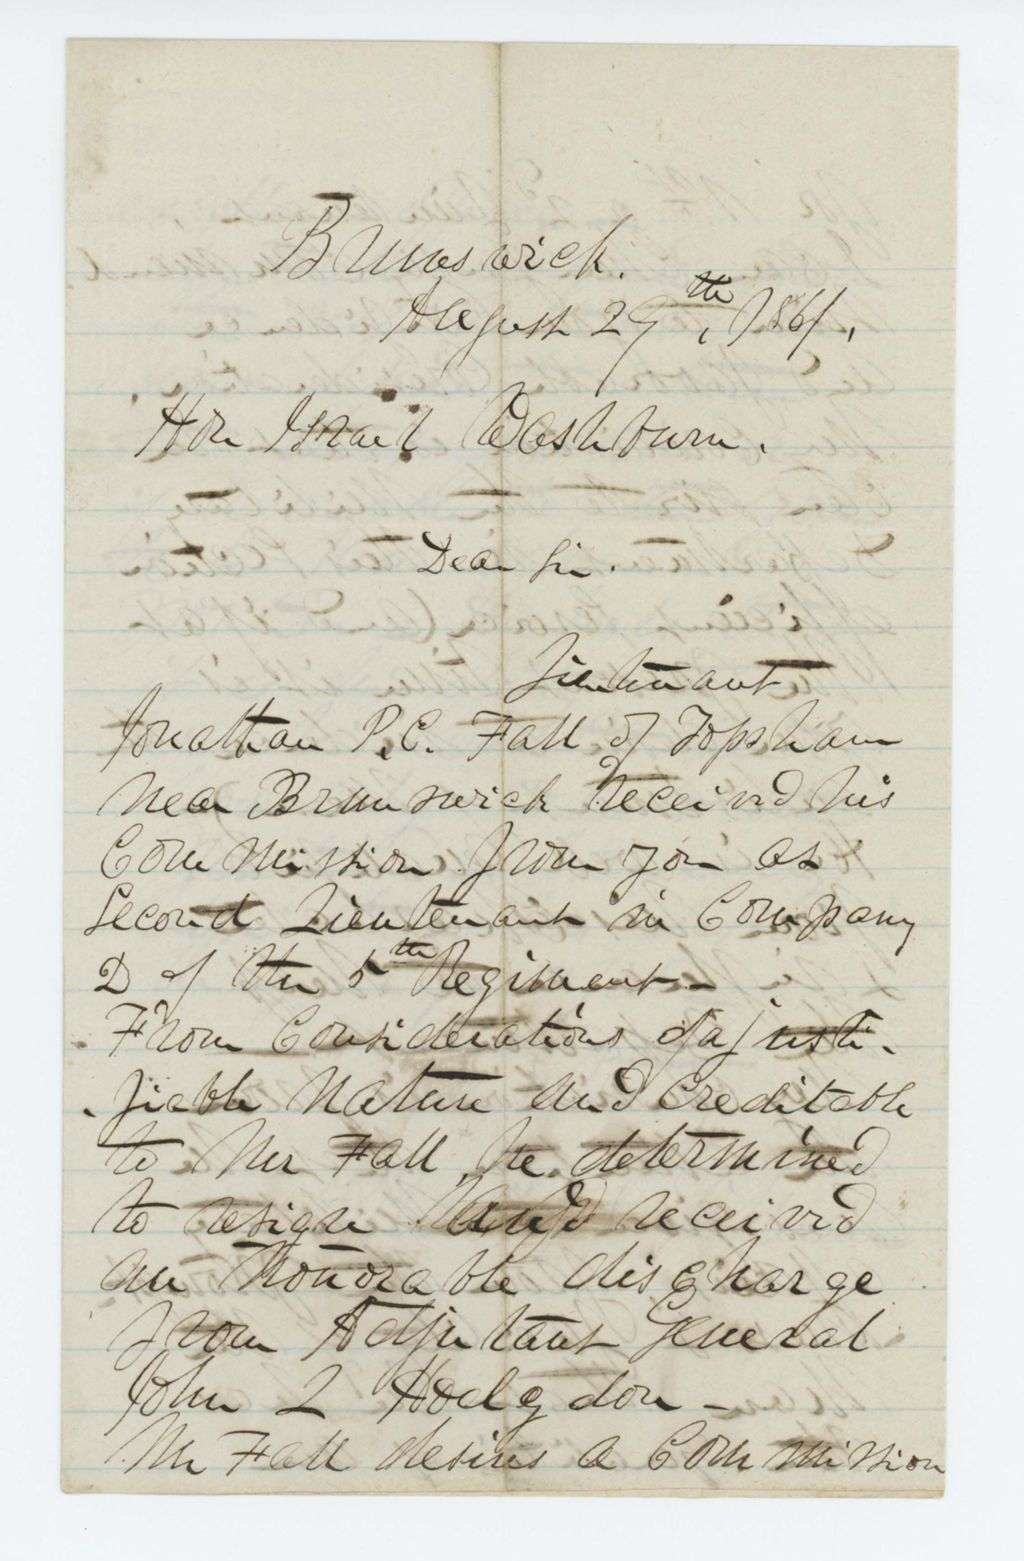 Brunswick.
August 29th, 1861.
Hon Israel Washburn.
Dear Sir.
Lieutenant
Jonathan P. C. Fall of Topsham
near Brunswick received his
Commission from you as
Second Lieutenant in Company
D of the 5th Regiment -
From Considerations of a justi-
-fiable nature and creditable
to Mr Fall, he determined
to resign and received
an honorable discharge
from Adjutant General
John L Hodgdon -
Mr Fall desires a Commission